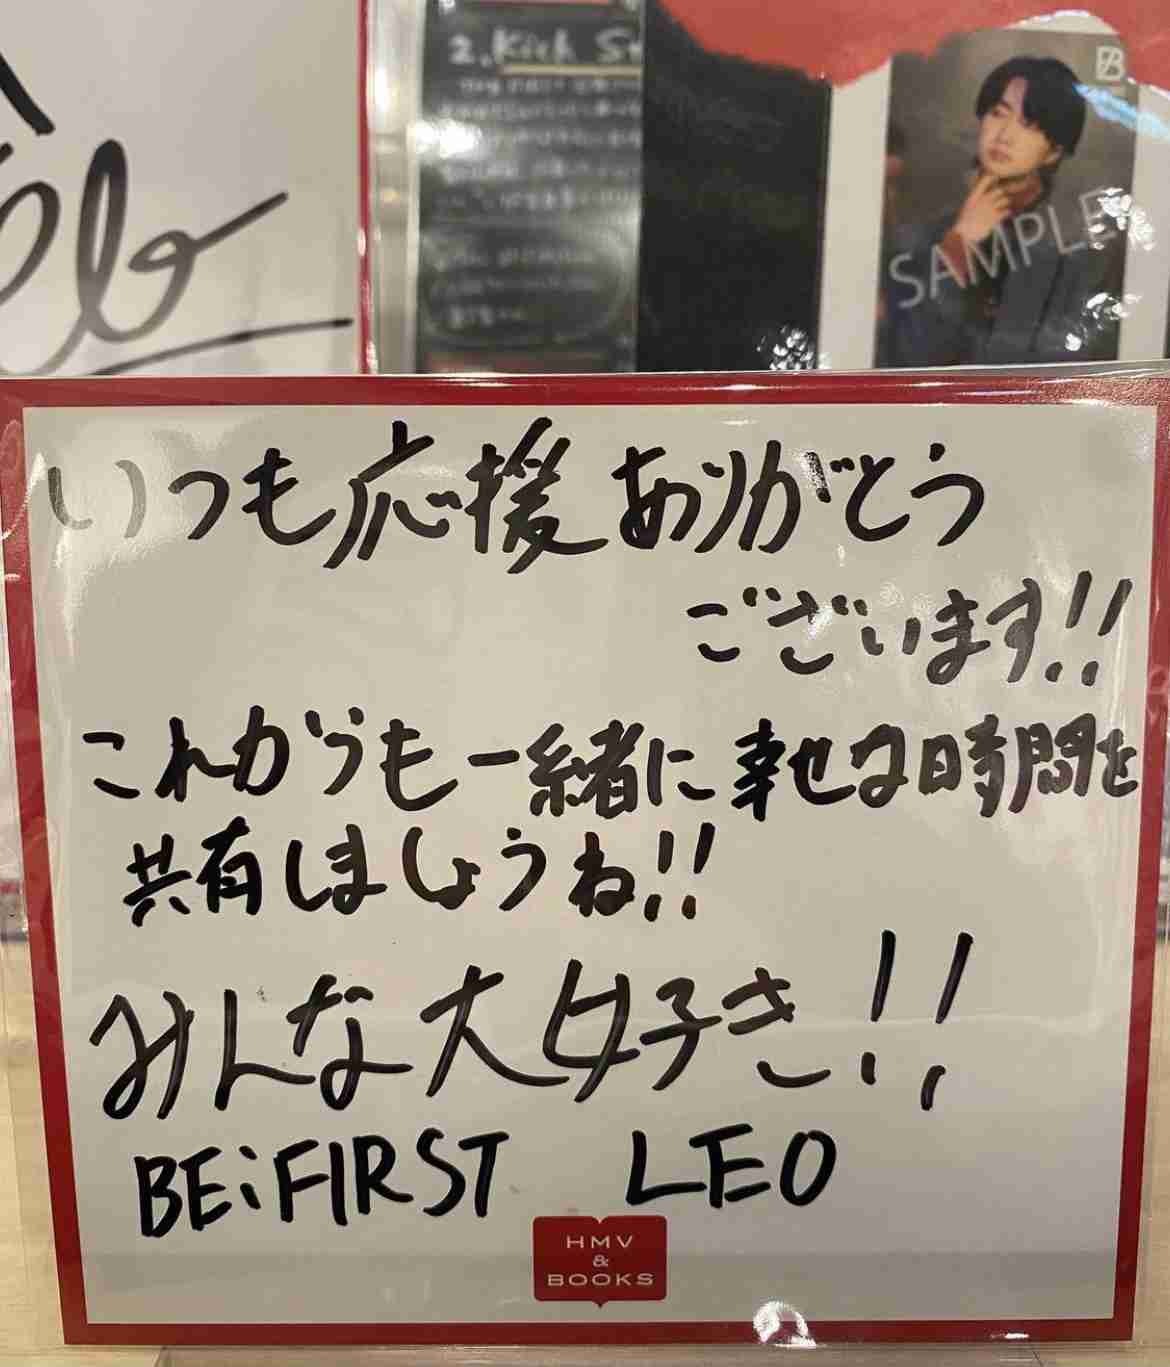 2. Kick St
SAMPLE
いつも応援ありがとう
ございます!!
これからも一緒に幸せな時間を
共有しましょうね!!
みんな大好き!!
BE:FIRST LEO
HMV
&
BOOKS